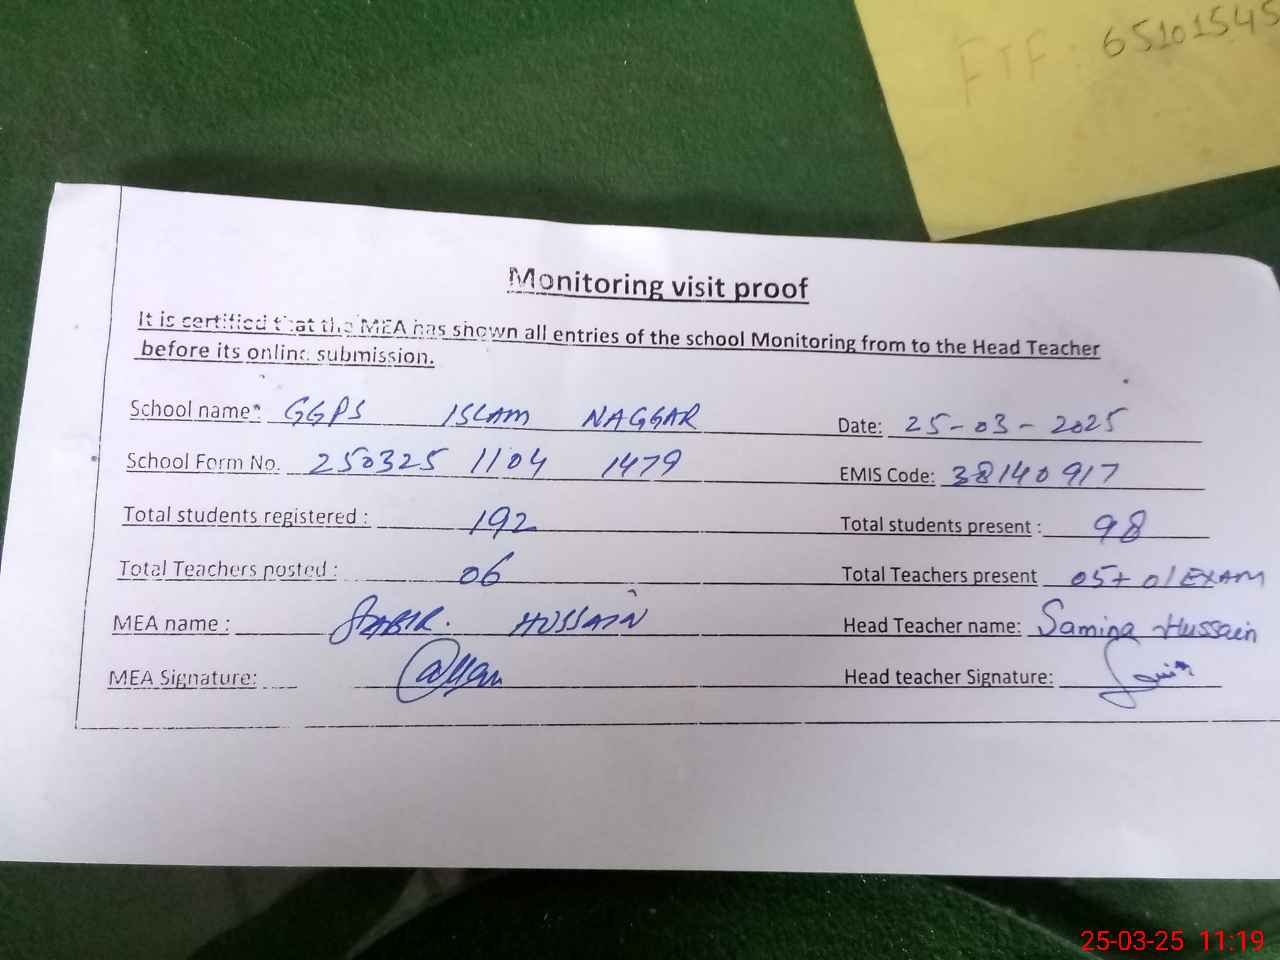 FTF: 65101545
Monitoring visit proof
It is certified that the MEA has shown all entries of the school Monitoring from to the Head Teacher
before its online submission.
School name: GGPS ISLAM NAGGAR Date: 25-03-2025
School Form No. 250325 1104 1479 EMIS Code: 38140917
Total students registered: 192 Total students present: 98
Total Teachers posted: 06 Total Teachers present 05+01EXAM
MEA name: HUSSAIN Head Teacher name: Samina Hussain
MEA Signature: Head teacher Signature:
25-03-25 11:19